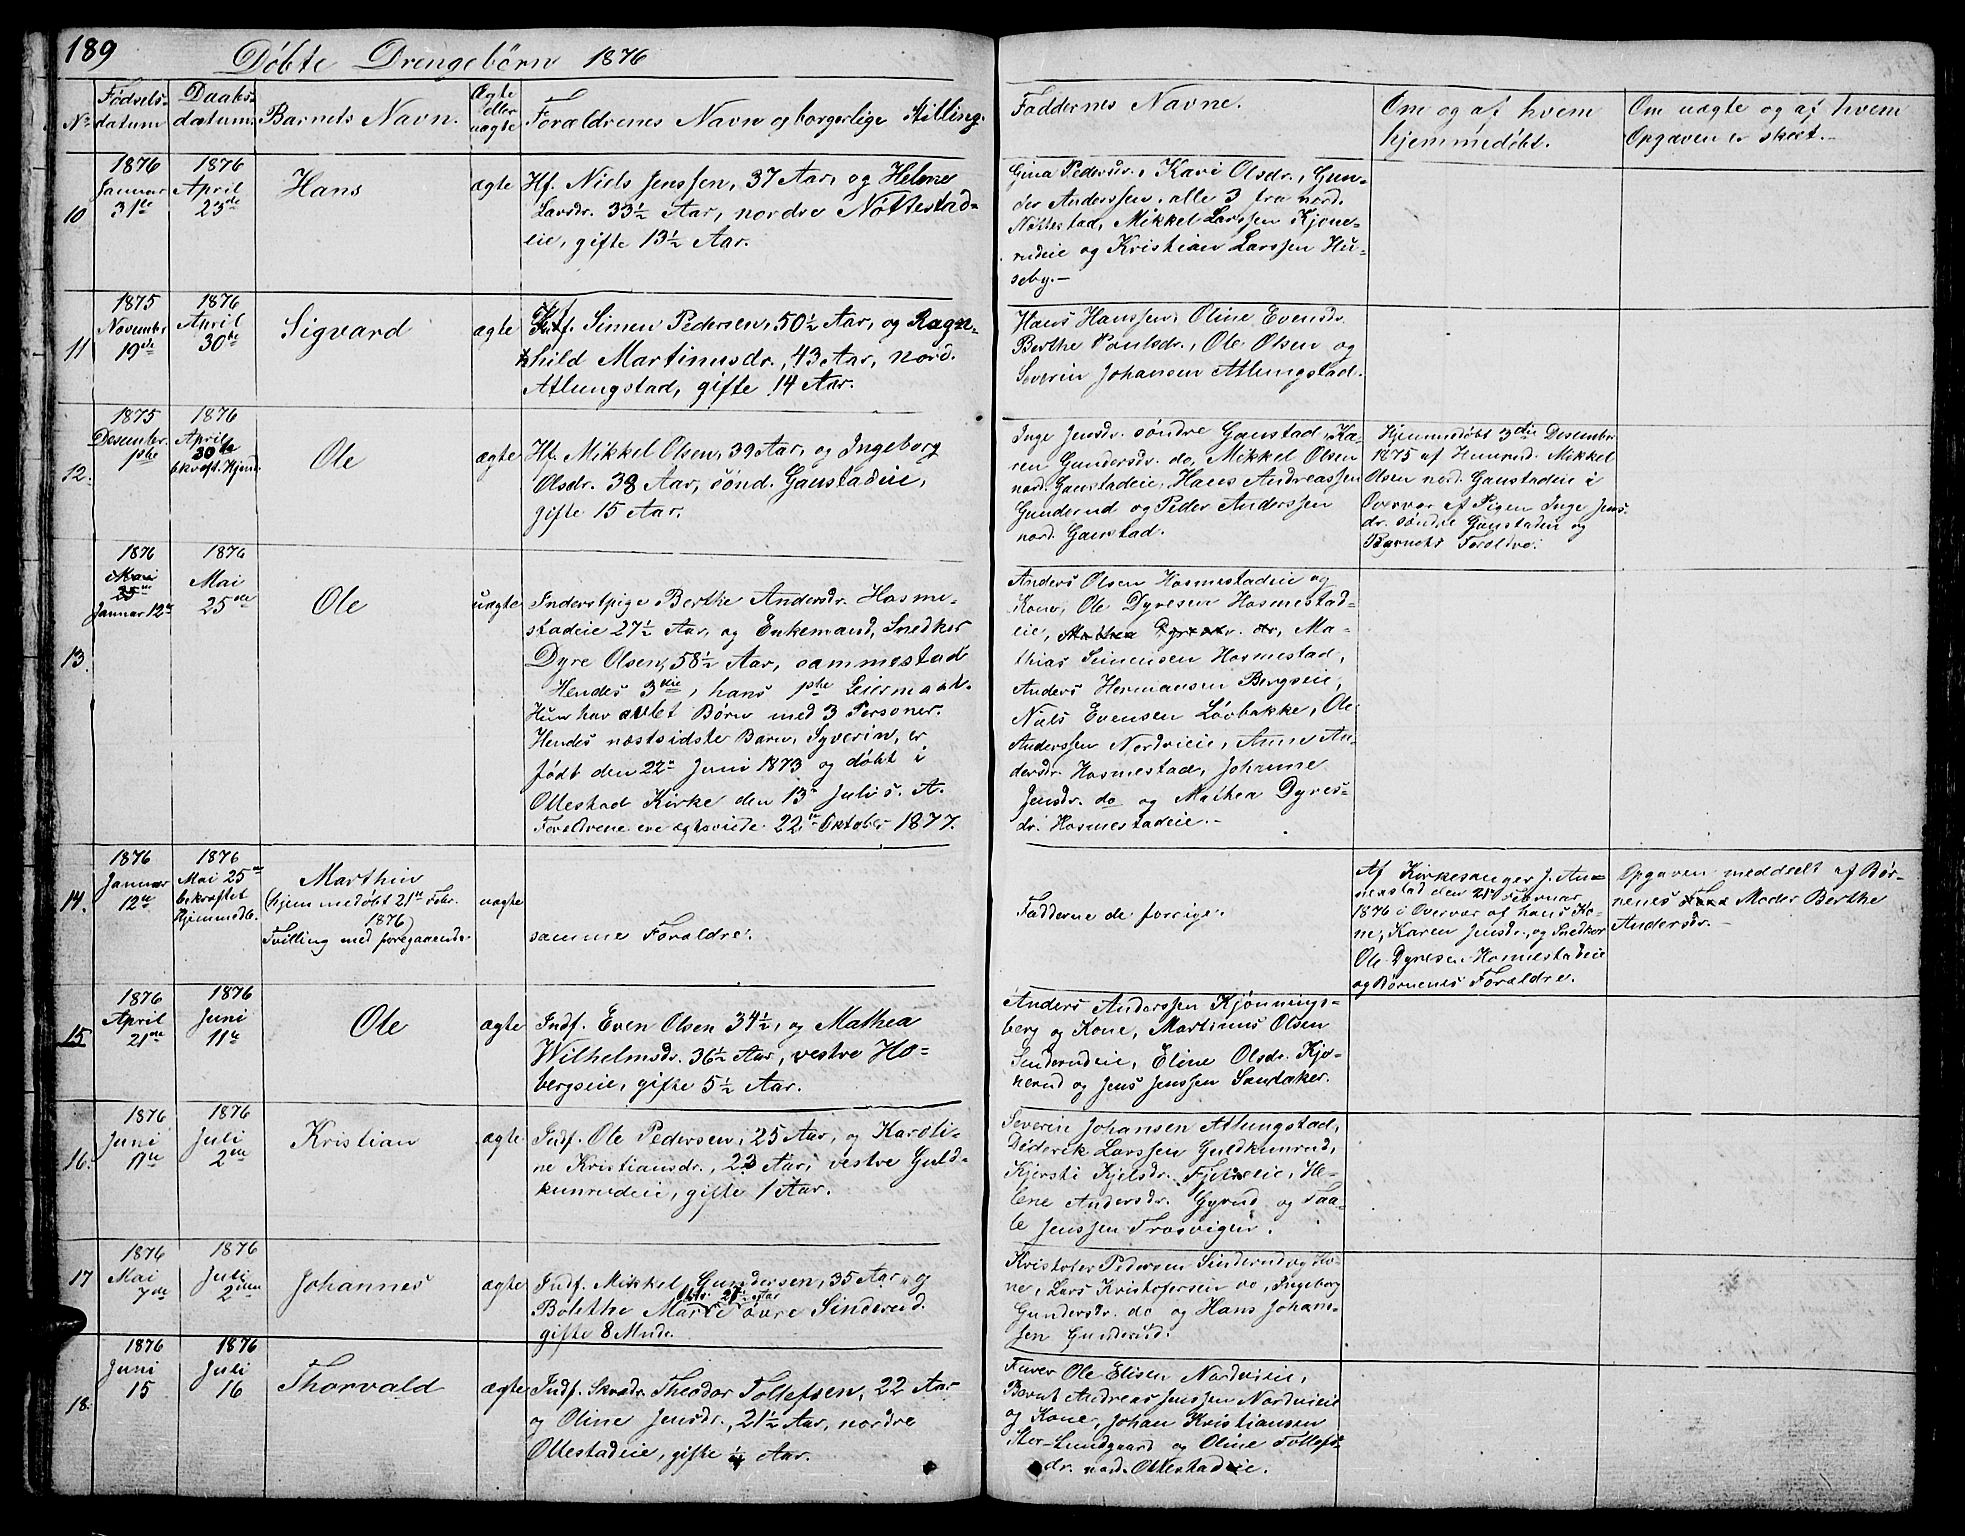 189
Döbte Drengebörn 1876
No.
Födsels-
datum
Daabs-
datum
Barnets Navn.
Ægte
eller
uægte
Forældrenes Navn og borgerlige Stilling.
Faddernes Navne.
Om og af hvem
hjemmedöbt.
Om uægte og af hvem
Opgaven er skeet.-
10
1876
Januar
31te
1876
April
23de
Hans
ægte
Hf. Niels Jenssen, 37 Aar, og Helene
Larsdr. 33½ Aar, nordre Nöttestad-
eie, gifte 13½ Aar.
Gina Pedersdr., Kari Olsdr., Gun-
der Anderssen, alle 3 fra nord.
Nöttestad, Mikkel Larssen Kjone-
rudeie og Kristian Larssen Hu-
seby.-
11
1875
Novembr.
19de
1876
April
30te
Sigvard
ægte
Hf. Simen Pedersen, 50½ Aar, og Ragn-
hild Martinusdr., 43 Aar, nord.
Atlungstad, gifte 14 Aar.
Hans Hanssen, Oline Evensdr.
Berthe Paulsdr., Ole Olsen og
Severin Johansen Atlungstad.
12.
1875
Desember.
1ste
1876
April
30te
bkræft. Hjemd.
Ole
ægte
Hf. Mikkel Olsen, 39 Aar, og Ingeborg
Olsdr. 38 Aar, sönd. Gaustadeie,
gifte 15 Aar.
Inge Jensdr. söndre Gaustad, Ka-
ren Gundersdr. do, Mikkel Olsen
nord. Gaustadeie, Hans Andreassen
Gunderud og Peder Anderssen
nord. Gaustad.
Hjemmedöbt 3die Desember
1875 af Hmmd. Mikkel
Olsen nord. Gaustadeie i
Overvær af Pigen Inge Jens-
dr. söndre Gaustadeie og
Barnets Forældre.
13.
1876
Mai
25de
Januar 12te
1876
Mai
25de
Ole
uægte
Inderstpige Berthe Andersdr. Hosme-
stadeie 27½ Aar, og Enkemand, Snedker
Dyre Olsen, 58½ Aar, sammestad
Hendes 3die, hans 1ste Leiermaal.
Hun har avlet Börn med 3 Personer.
Hendes næstsidste Barn, Syverin, er
født den 22de Juni 1873 og döbt i
Ottestad Kirke den 13de Juli s. A.
Forældrene ere ægteviede 22de Oktober 1877.
Anders Olsen Hosmestadeie og
Kone, Ole Dyresen Hosmestad-
eie, Mathea Dyresdr. do, Ma-
thias Simensen Hosmestad,
Anders Hermansen Bergseie,
Niels Evensen Lövbakke, Ole
Anderssen Nordvieie, Anne An-
dersdr. Hosmestad, Johanne
Jensdr. do og Mathea Dyres-
dr. Hosmestadeie.-
14.
1876
Januar
12te
1876
Mai 25de
bekræftet
Hjemmedb.
Marthin
(hjemmedöbt 21de Febr.
1876)
Tvilling med foregaaende
uægte
samme Forældre.
Fadderne de forrige.
Af Kirkesanger J. An-
nestad den 21de Februar
1876 i Overvær af hans Ko-
ne, Karen Jensdr., og Snedker
Ole Dyresen Hosmestadeie
og Börnenes Forældre.
Opgaven meddeelt af Bör-
nenes Moder Berthe
Andersdr.-
15.
1876
April
21de
1876
Juni
11te
Ole
ægte
Indf. Even Olsen 34½, og Mathea
Wilhelmsdr. 36½ Aar, vestre Ho-
bergseie, gifte 5½ Aar.
Anders Anderssen Kjönnings-
berg og Kone, Martinus Olsen
Sinderudeie, Eline Olsdr. Kjo-
nerud og Jens Jenssen Sandaker.
16.
1876
Juni
11te
1876
Juli
2den
Kristian
ægte
Indf. Ole Pedersen, 25 Aar, og Karoli-
ne Kristiansdr., 23 Aar, vestre Guld-
kunrudeie, gifte 1 Aar.
Severin Johansen Atlungstad,
Diderik Larssen Guldkunrud,
Kjersti Kjelsdr. Fjetreeie, He-
lene Andersdr. Gyrud og Paa-
le Jenssen Frosvigen.
17
1876
Mai
7de
1876
Juli
2den
Johannes
ægte
Indf. Mikkel Gundersen, 35 Aar, og
Bolethe Marie Olsdr. 21½ Aar övre Sinderud.
gifte 8 Mndr.
Kristofer Pedersen Sinderud og Ko-
ne, Lars Kristofersen do, Ingeborg
Gundersdr. do og Hans Johans-
sen Gunderud.
18.
1876
Juni
15
1876
Juli
16
Thorvald
ægte
Indf. Skrædr. Theodor Tollefsen, 22 Aar
og Oline Jensdr., 21½ Aar, nordre
Ottestadeie, gifte ¼ Aar.
Farver Ole Elisen Nordvieie,
Bernt Andreas Jenssen Nordvieie
og Kone, Johan Kristiansen
Stor-Lundgaard og Oline Tollefs-
dr. nord. Ottestadeie.